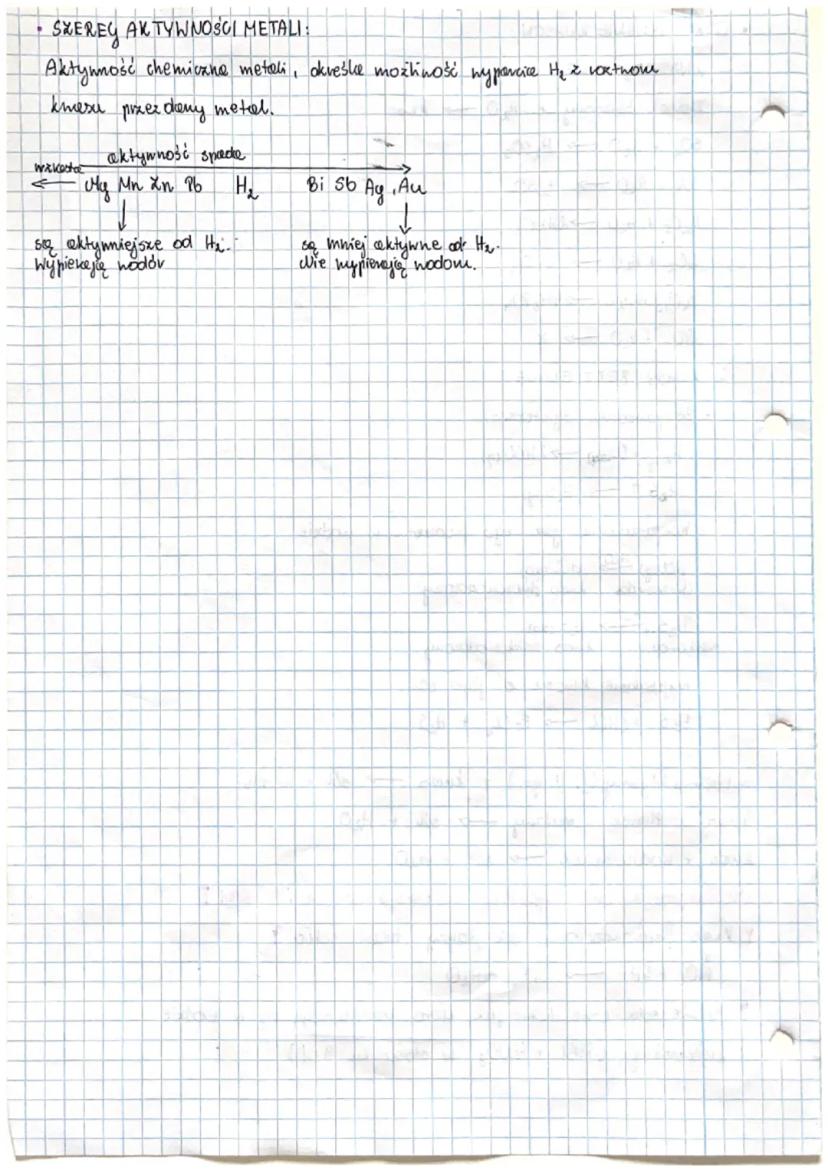 • SZEREG AKTYWNOŚCI METALI:
Aktywność chemiczna metali, określa możliwość wyparcia H₂ z roztworu
kwasu przez dany metal.
aktywność spada
wzrasta
Mg Mn Zn Pb H₂ Bi Sb Ag, Au
są aktywniejsze od H₂. są mniej aktywne od H₂.
Wypierają wodór Nie wypierają wodoru.